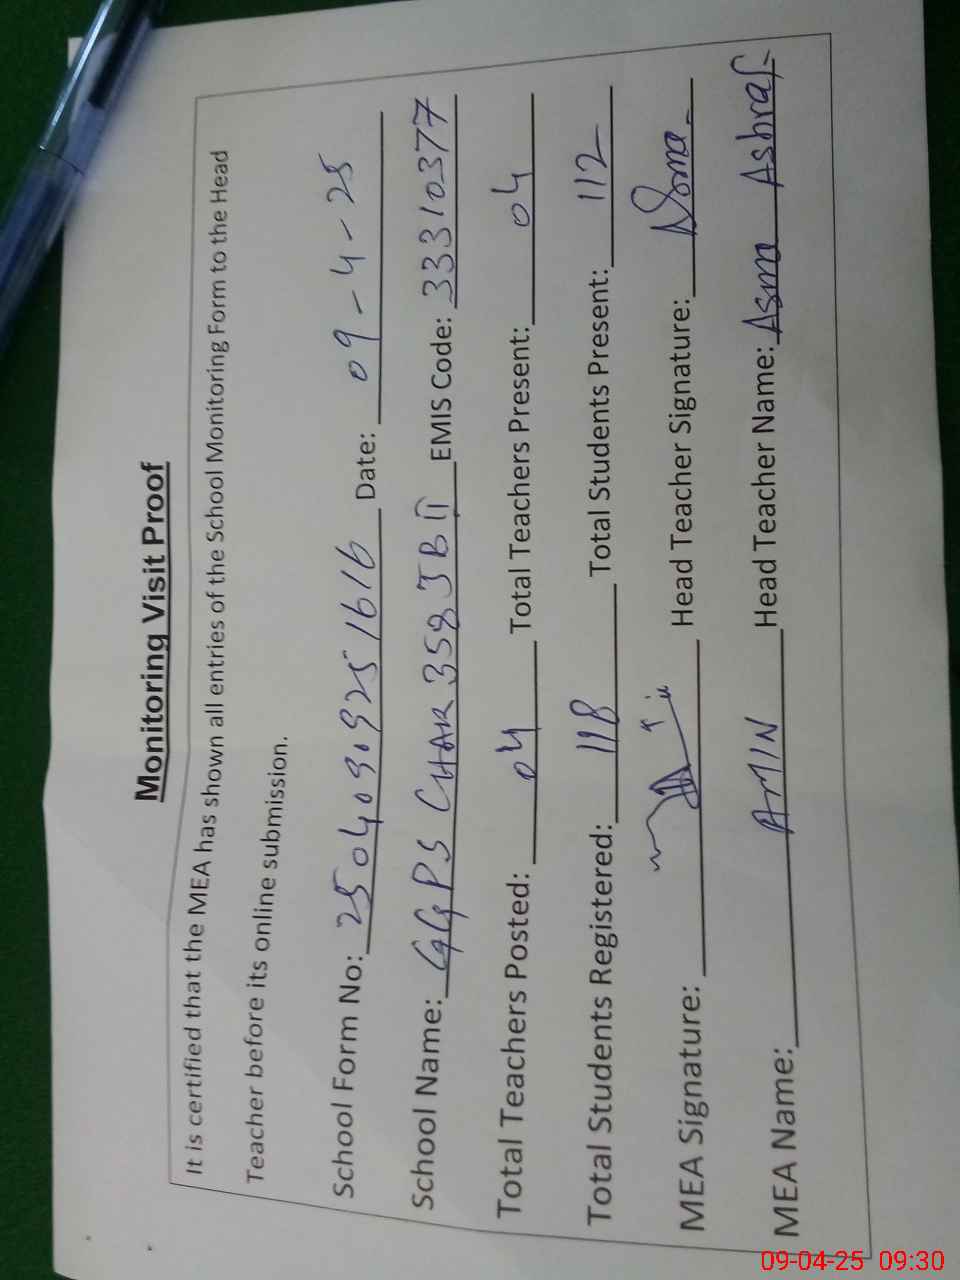 Monitoring Visit Proof
It is certified that the MEA has shown all entries of the School Monitoring Form to the Head
Teacher before its online submission.
School Form No: 25040909251616 Date: 09-4-25
School Name: GGPS CHAK 358 JB II EMIS Code: 33310377
Total Teachers Posted: 04 Total Teachers Present: 04
Total Students Registered: 118 Total Students Present: 112
MEA Signature: Head Teacher Signature: Asma
MEA Name: AMIN Head Teacher Name: Asma Ashraf
09-04-25 09:30